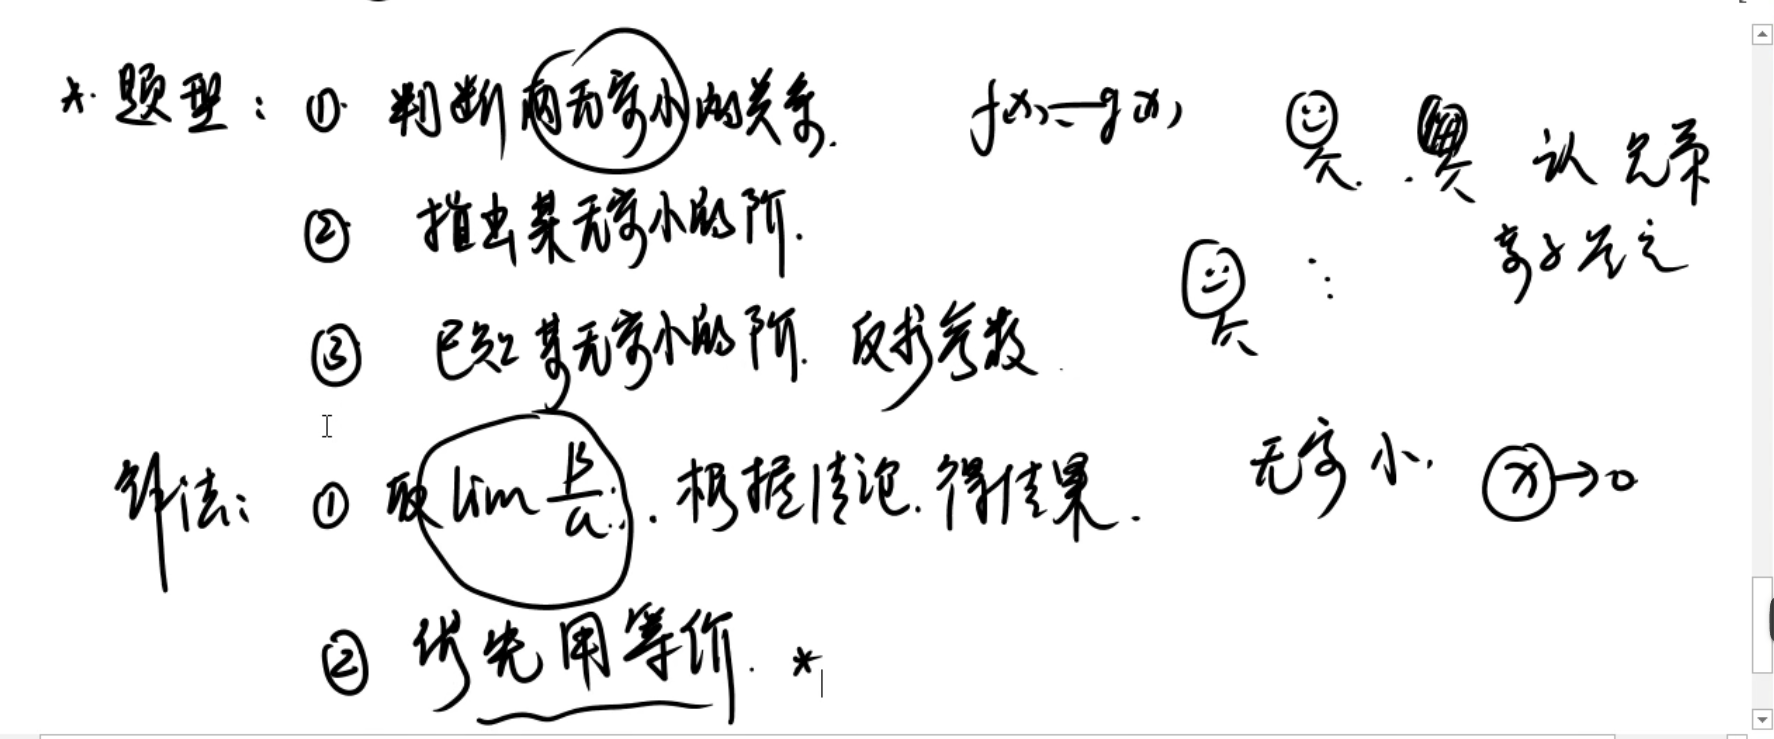 *. 题型： ① 判断两无穷小的关系. f(x) — g(x) 认 兄弟
② 指出某无穷小的阶.
③ 已知某无穷小的阶. 反求参数.
算法： ① 取 lim β/α. 根据结论. 得结果. 无穷小. x→0
② 优先用等价. *